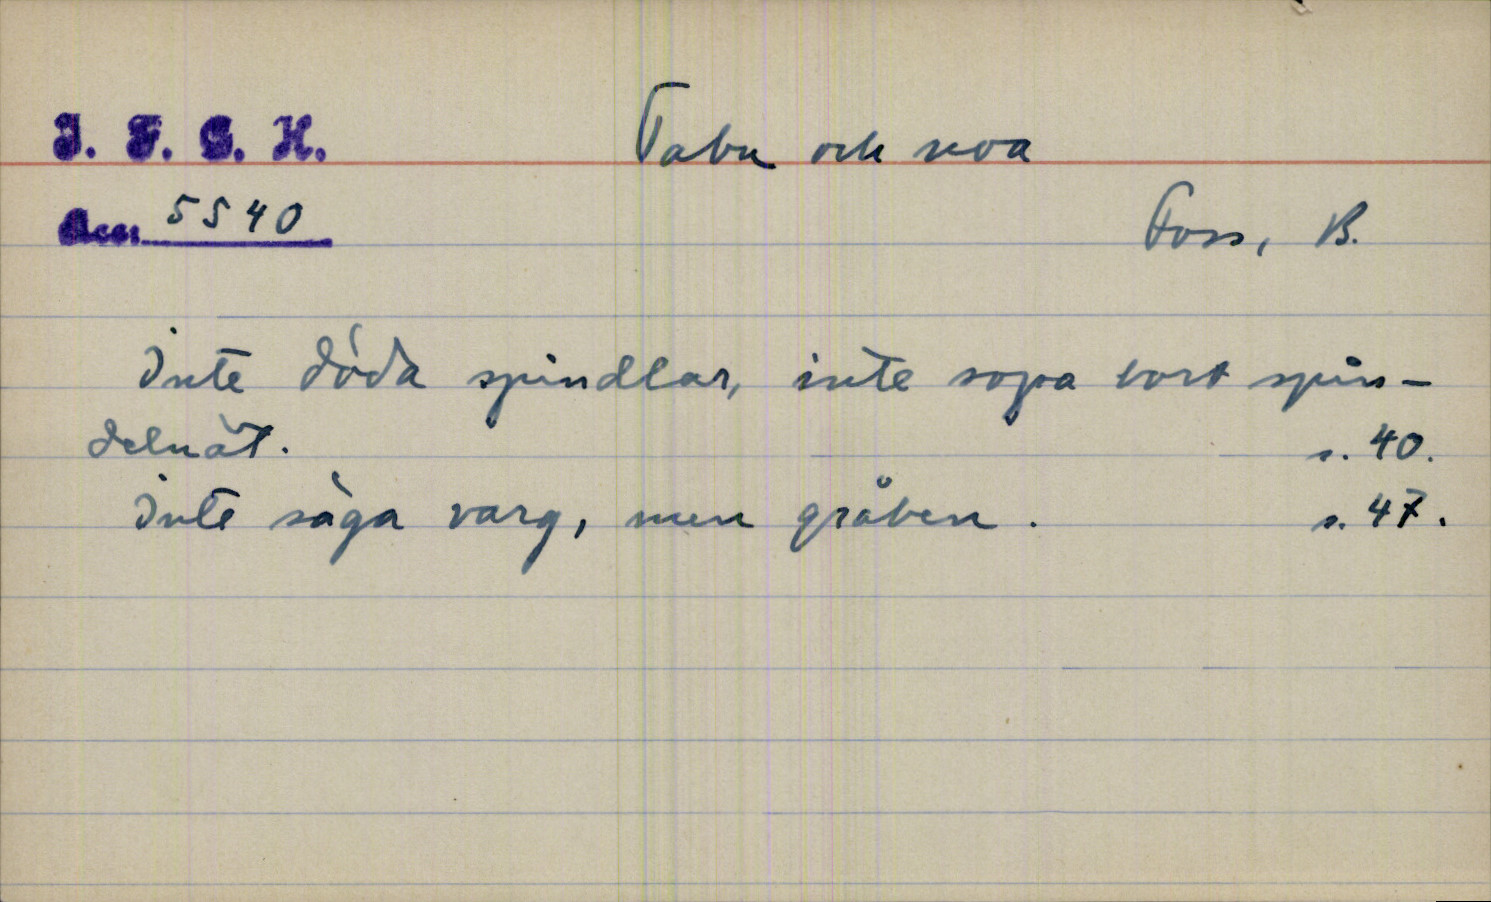 I. F. G. H. Tabu och noa
Acc. 5540 Foss, B.
Inte döda spindlar, inte sopa bort spin-
delnät. s. 40.
Inte säga varg, men gråben. s. 47.